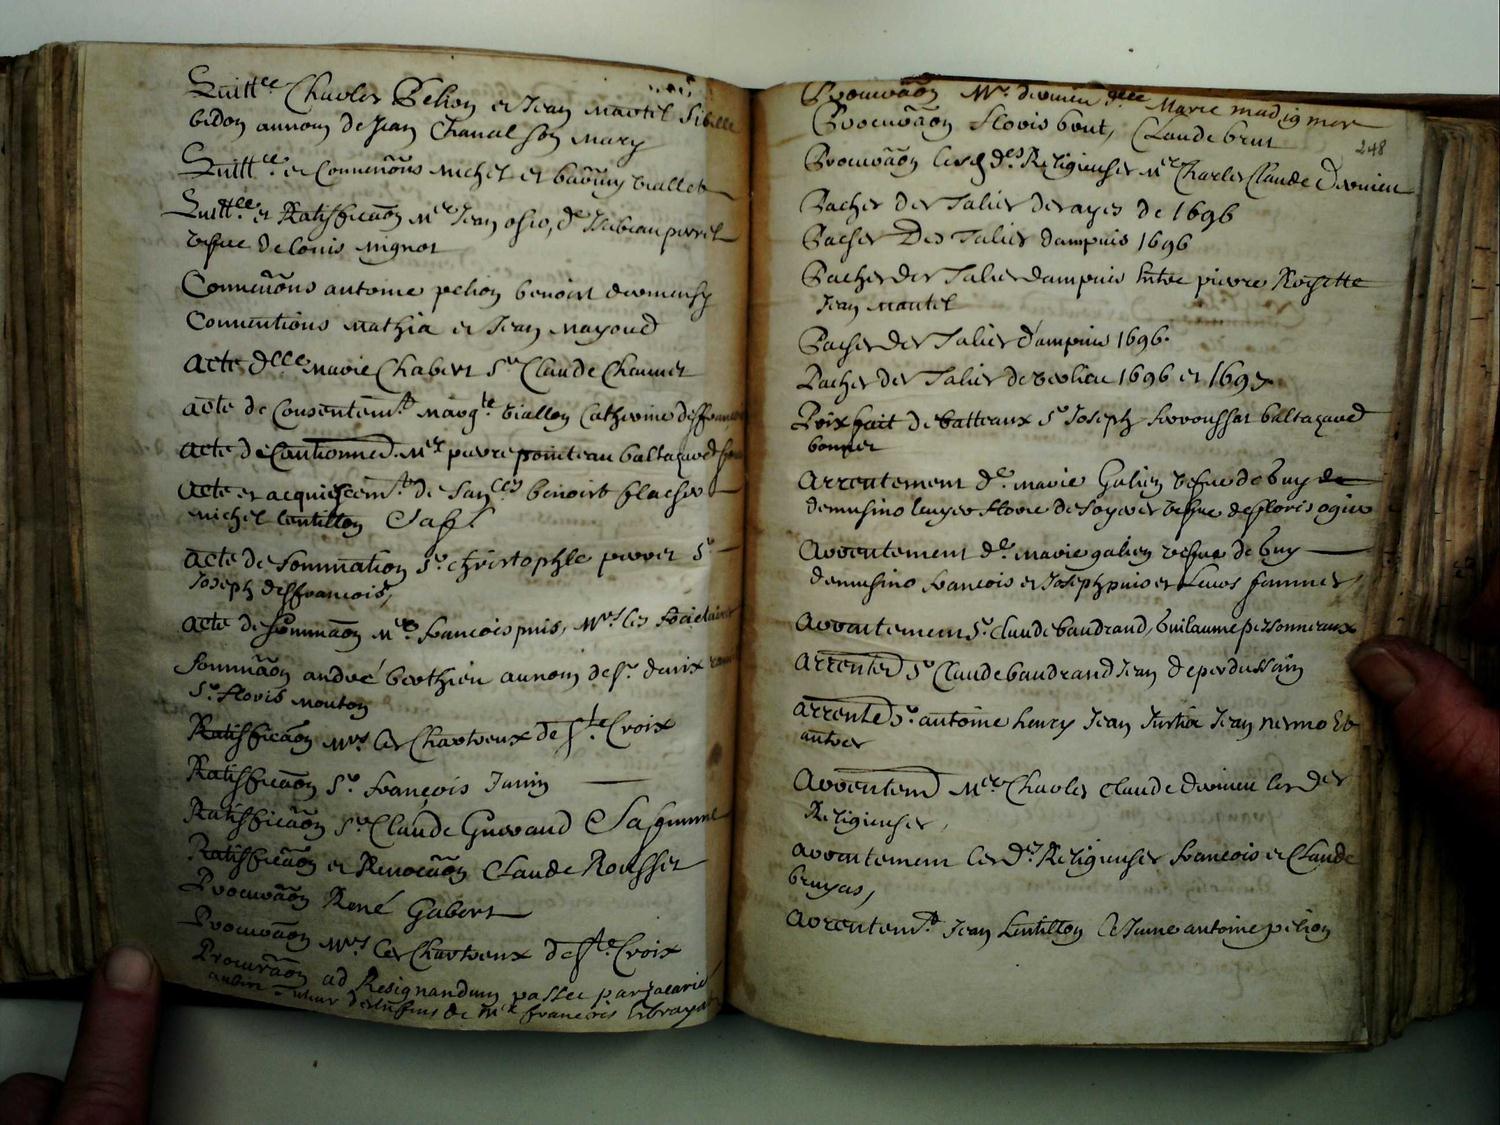 Quitt.ce Charles Pelion et Jean Martel Sibille
bidon aunom de Jean Chanal son Mary
Quitt.ce et Convenãõns michel et viallet
Quitt.ce et Ratifficãõn M.er Jean ofio, d.e Isabeau perret
vefue de Louis mignot
Convenãõns antoine pelion benoist
Conventions Mathia et Jean Mayoud
Acte d.lle Marie Chabert S.r Claude Chomet
acte de Consentem.t Marg.te viallon Catherine
acte de Cautionned. M.er pierre pointeau baltazard
acte et acquiescem.t de benoist flacher
michel Lentillon
acte de Sommation S.r christophle perret S.r
Joseph deffrancois,
acte de Sommãõn M.e francois puis, M.rs les Societaires
Sommãõn andré berthieu aunom de S.r
S.r floris mouton
Ratifficãõn M.rs les Chartreux de S.te Croix
Ratifficãõn S.r francois Janin
Ratifficãõn S.r Claude Guerand Sa femme
Ratifficãõn et Revocãõn Claude Rousset
Procurãõn René Gabert
Procurãõn M.rs les Chartreux de S.te Croix
Procurãõn ad Resignandum passee par zacarie
de M.e francois
Procurãõn M.r d.lle Marie
Procurãõn floris bout, Claude brut
248
Procurãõn les d.es Religieuses M.er Charles Claude Dervieu
Pacher des Tailles derayes de 1696
Pacher Des Tailles dampuis 1696
Pacher des Tailles dampuis Entre pierre Rogette
Jean Mantel
Pacher des Tailles d'ampuis 1696.
Pacher des Tailles de 1696 et 1697
Prix fait de batteaux S.r Joseph baltazard
bonnet
Arrentement d.e marie Galien vefue de buy de
demusino
Arrentement d.e marie galien vefue de buy
demusino francois et Joseph puis et Leurs femmes
Arrentement S.r Claude baudrand, Guilaume pessonneaux
Arrented S.r Claude baudrand Jean deperdussin
Arrente S.r antoine henry Jean Jean nermo Et
autres
Arrentem.d M.er Charles Claude Dervieu les des
Religieuses,
arrentement les d.es Religieuses francois et Claude
bruyas,
Arrentem.t Jean Lentillon antoine pelion